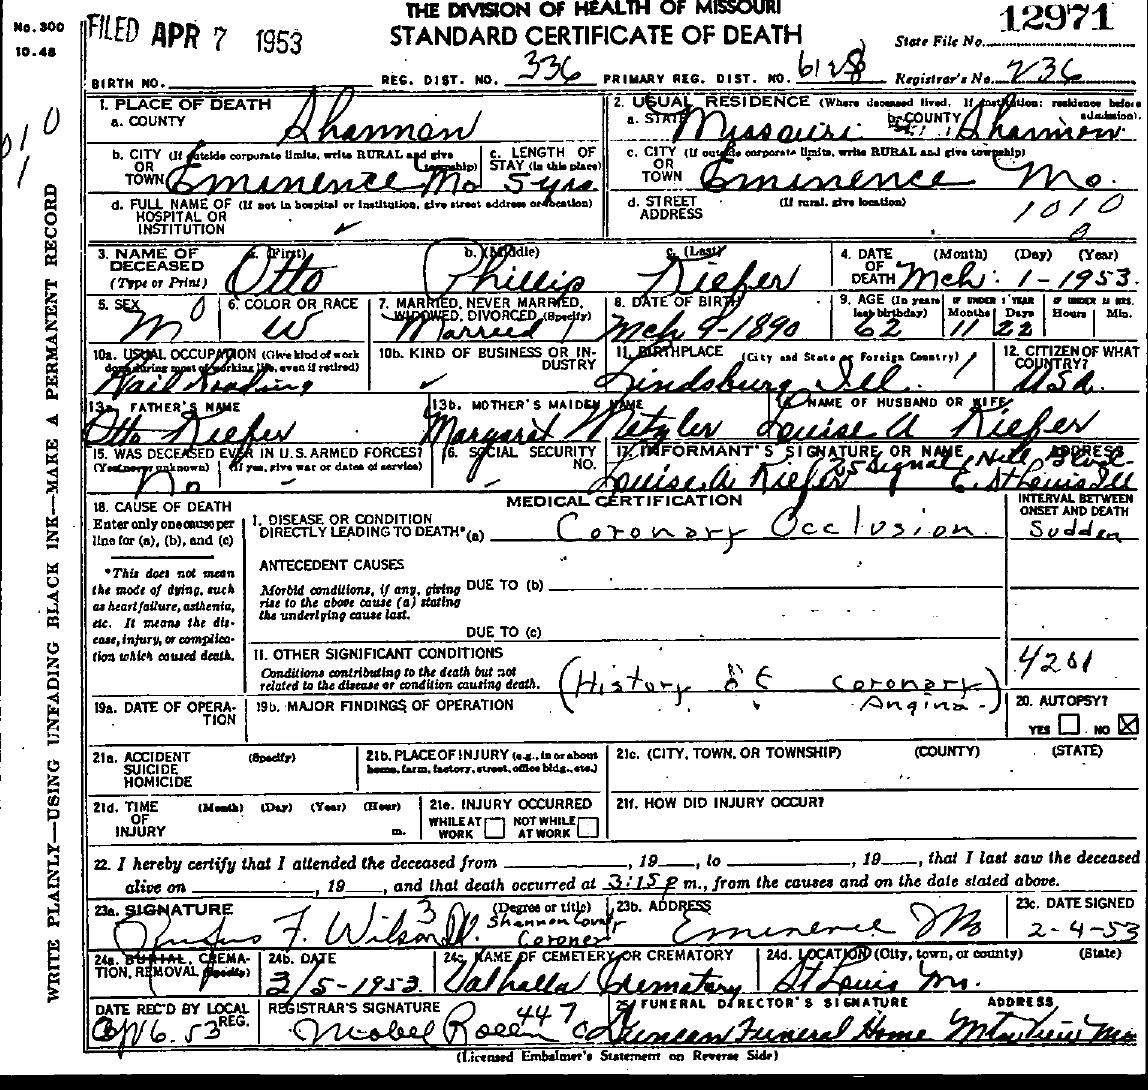 THE DIVISION OF HEALTH OF MISSOURI
STANDARD CERTIFICATE OF DEATH
No. 300
10.48
FILED APR 7 1953
State File No. 12971
BIRTH NO.
REG. DIST. NO. 336
PRIMARY REG. DIST. NO. 6128
Registrar's No. 236
WRITE PLAINLY—USING UNFADING BLACK INK—MAKE A PERMANENT RECORD
1. PLACE OF DEATH
a. COUNTY Shannon
2. USUAL RESIDENCE (Where deceased lived. If institution: residence before admission).
a. STATE Missouri b. COUNTY Shannon
b. CITY (If outside corporate limits, write RURAL and give township)
OR
TOWN Eminence Mo
c. LENGTH OF
STAY (in this place)
5 yrs.
c. CITY (If outside corporate limits, write RURAL and give township)
OR
TOWN Eminence Mo.
d. FULL NAME OF (If not in hospital or institution, give street address or location)
HOSPITAL OR
INSTITUTION
d. STREET (If rural, give location)
ADDRESS
1010
0
3. NAME OF
DECEASED
(Type or Print)
a. (First) Otto
b. (Middle) Phillip
c. (Last) Kiefer
4. DATE (Month) (Day) (Year)
OF
DEATH Mch. 1-1953
5. SEX
M
6. COLOR OR RACE
W
7. MARRIED, NEVER MARRIED,
WIDOWED, DIVORCED (Specify)
Married 1
8. DATE OF BIRTH
Mch 9-1890
9. AGE (In years last birthday) 62
IF UNDER 1 YEAR Months 11 Days 22
IF UNDER 24 HRS. Hours Min.
10a. USUAL OCCUPATION (Give kind of work
done during most of working life, even if retired)
10b. KIND OF BUSINESS OR INDUSTRY
11. BIRTHPLACE (City and State or Foreign Country)
Lindsburg Ill.
12. CITIZEN OF WHAT
COUNTRY?
USA.
13a. FATHER'S NAME
Otto Kiefer
13b. MOTHER'S MAIDEN NAME
Margaret Metzler
14. NAME OF HUSBAND OR WIFE
Louise A Kiefer
15. WAS DECEASED EVER IN U.S. ARMED FORCES?
(Yes, no, or unknown) (If yes, give war or dates of service)
No
16. SOCIAL SECURITY
NO.
17. INFORMANT'S SIGNATURE OR NAME ADDRESS
Louise A Kiefer 25 Signal Hill Blvd.
E. St Louis Ill
18. CAUSE OF DEATH
Enter only one cause per
line for (a), (b), and (c)
*This does not mean
the mode of dying, such
as heart failure, asthenia,
etc. It means the dis-
ease, injury, or complica-
tion which caused death.
MEDICAL CERTIFICATION
I. DISEASE OR CONDITION
DIRECTLY LEADING TO DEATH*(a) Coronary Occlusion
INTERVAL BETWEEN
ONSET AND DEATH
Sudden
ANTECEDENT CAUSES
Morbid conditions, if any, giving DUE TO (b)
rise to the above cause (a) stating
the underlying cause last.
DUE TO (c)
II. OTHER SIGNIFICANT CONDITIONS
Conditions contributing to the death but not
related to the disease or condition causing death.
(History of coronary
Angina.)
4201
19a. DATE OF OPERA-
TION
19b. MAJOR FINDINGS OF OPERATION
20. AUTOPSY?
YES NO ☒
21a. ACCIDENT (Specify)
SUICIDE
HOMICIDE
21b. PLACE OF INJURY (e.g., in or about
home, farm, factory, street, office bldg., etc.)
21c. (CITY, TOWN, OR TOWNSHIP) (COUNTY) (STATE)
21d. TIME (Month) (Day) (Year) (Hour)
OF
INJURY m.
21e. INJURY OCCURRED
WHILE AT NOT WHILE
WORK AT WORK
21f. HOW DID INJURY OCCUR?
22. I hereby certify that I attended the deceased from , 19 , to , 19 , that I last saw the deceased
alive on , 19 , and that death occurred at 3:15 p m., from the causes and on the date stated above.
23a. SIGNATURE (Degree or title)
Rufus F. Wilson 3
Shannon County
Coroner
23b. ADDRESS
Eminence Mo
23c. DATE SIGNED
2-4-53
24a. BURIAL, CREMA-
TION, REMOVAL (Specify)
24b. DATE
3/5-1953
24c. NAME OF CEMETERY OR CREMATORY
Valhalla Crematory
24d. LOCATION (City, town, or county) (State)
St Louis Mo.
DATE REC'D BY LOCAL
REG.
Apr 6. 53
REGISTRAR'S SIGNATURE
Mabel 447
25. FUNERAL DIRECTOR'S SIGNATURE ADDRESS
Duncan Funeral Home Mtn View Mo
(Licensed Embalmer's Statement on Reverse Side)